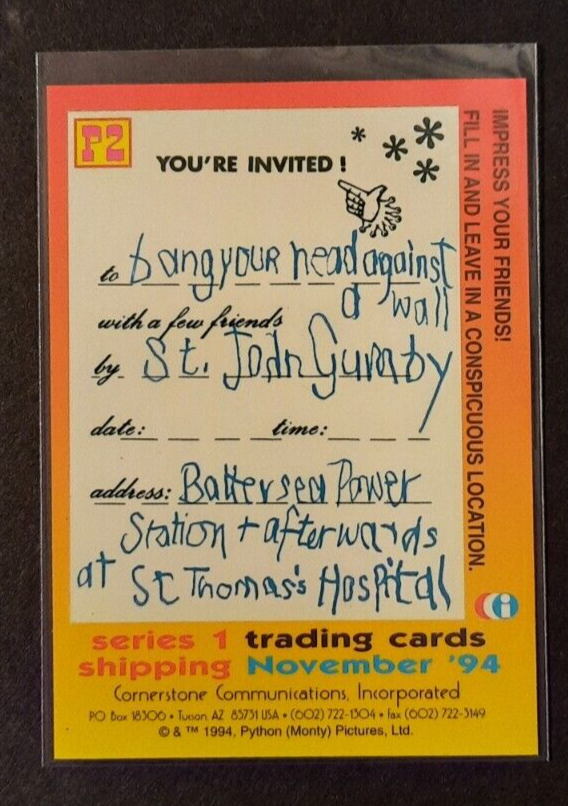 P2
YOU'RE INVITED!
to bang your head against
a wall
with a few friends
by St. John Gumby
date: time:
address: Battersea Power
Station + afterwards
at St Thomas's Hospital
IMPRESS YOUR FRIENDS!
FILL IN AND LEAVE IN A CONSPICUOUS LOCATION.
series 1 trading cards
shipping November '94
Cornerstone Communications, Incorporated
PO Box 18306 • Tucson, AZ 85731 USA • (602) 722-1304 • fax (602) 722-3149
© & ™ 1994, Python (Monty) Pictures, Ltd.